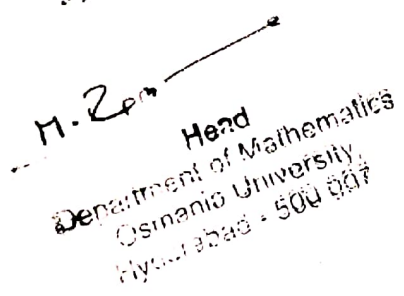 Head
Department of Mathematics
Osmania University,
Hyderabad - 500 007